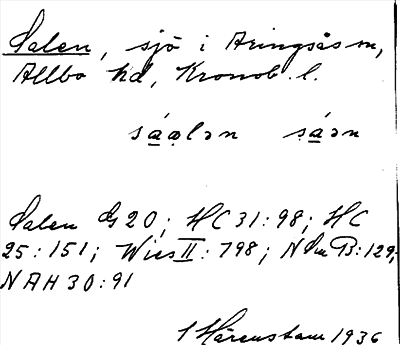 Salen, sjö i Aringsås sn,
Allbo hd, Kronob. l.
sáalən sáən
Salen G20; HC 31:98; HC
25:151; Wies II:798; NSmB:129;
NAH 30:91
Härenstam 1936